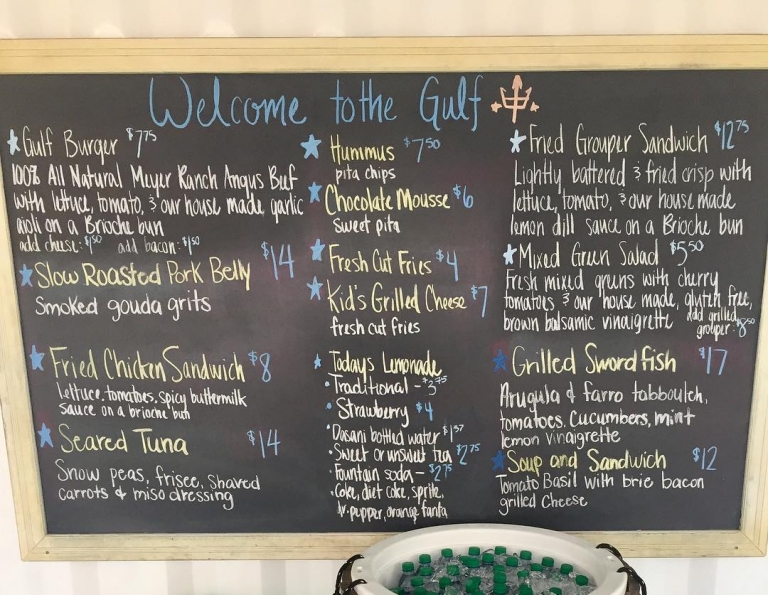 Welcome to the Gulf
Gulf Burger $7.75
100% All Natural Meyer Ranch Angus Beef
with lettuce, tomato, & our house made garlic
aioli on a Brioche bun
add cheese: $1.50 add bacon: $1.50
Slow Roasted Pork Belly $14
Smoked gouda grits
Fried Chicken Sandwich $8
lettuce, tomatoes, spicy buttermilk
sauce on a brioche bun
Seared Tuna $14
Snow peas, frisee, shaved
carrots & miso dressing
Hummus $7.50
pita chips
Chocolate Mousse $6
Sweet pita
Fresh Cut Fries $4
Kid's Grilled Cheese $7
fresh cut fries
Todays Lemonade
Traditional - $3.75
Strawberry $4
Dasani bottled water
Sweet or unsweet tea $2.75
Fountain soda - $2.75
Coke, diet coke, sprite,
dr. pepper, orange fanta
Fried Grouper Sandwich $12.75
Lightly battered & fried crisp with
lettuce, tomato, & our house made
lemon dill sauce on a Brioche bun
Mixed Green Salad $5.50
Fresh mixed greens with cherry
tomatoes & our house made, gluten free,
brown balsamic vinaigrette
add grilled
grouper: $8.50
Grilled Swordfish $17
Arugula & farro tabbouleh,
tomatoes, cucumbers, mint
lemon vinaigrette
Soup and Sandwich $12
Tomato Basil with brie bacon
grilled cheese